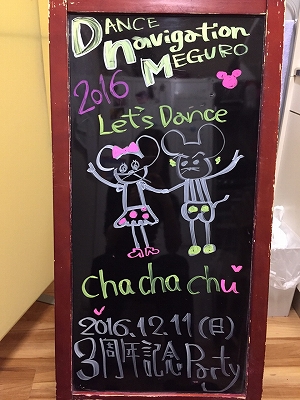 DANCE
Navigation
MEGURO
2016
Let's Dance
chachachu
2016.12.11(日)
3周年記念Party